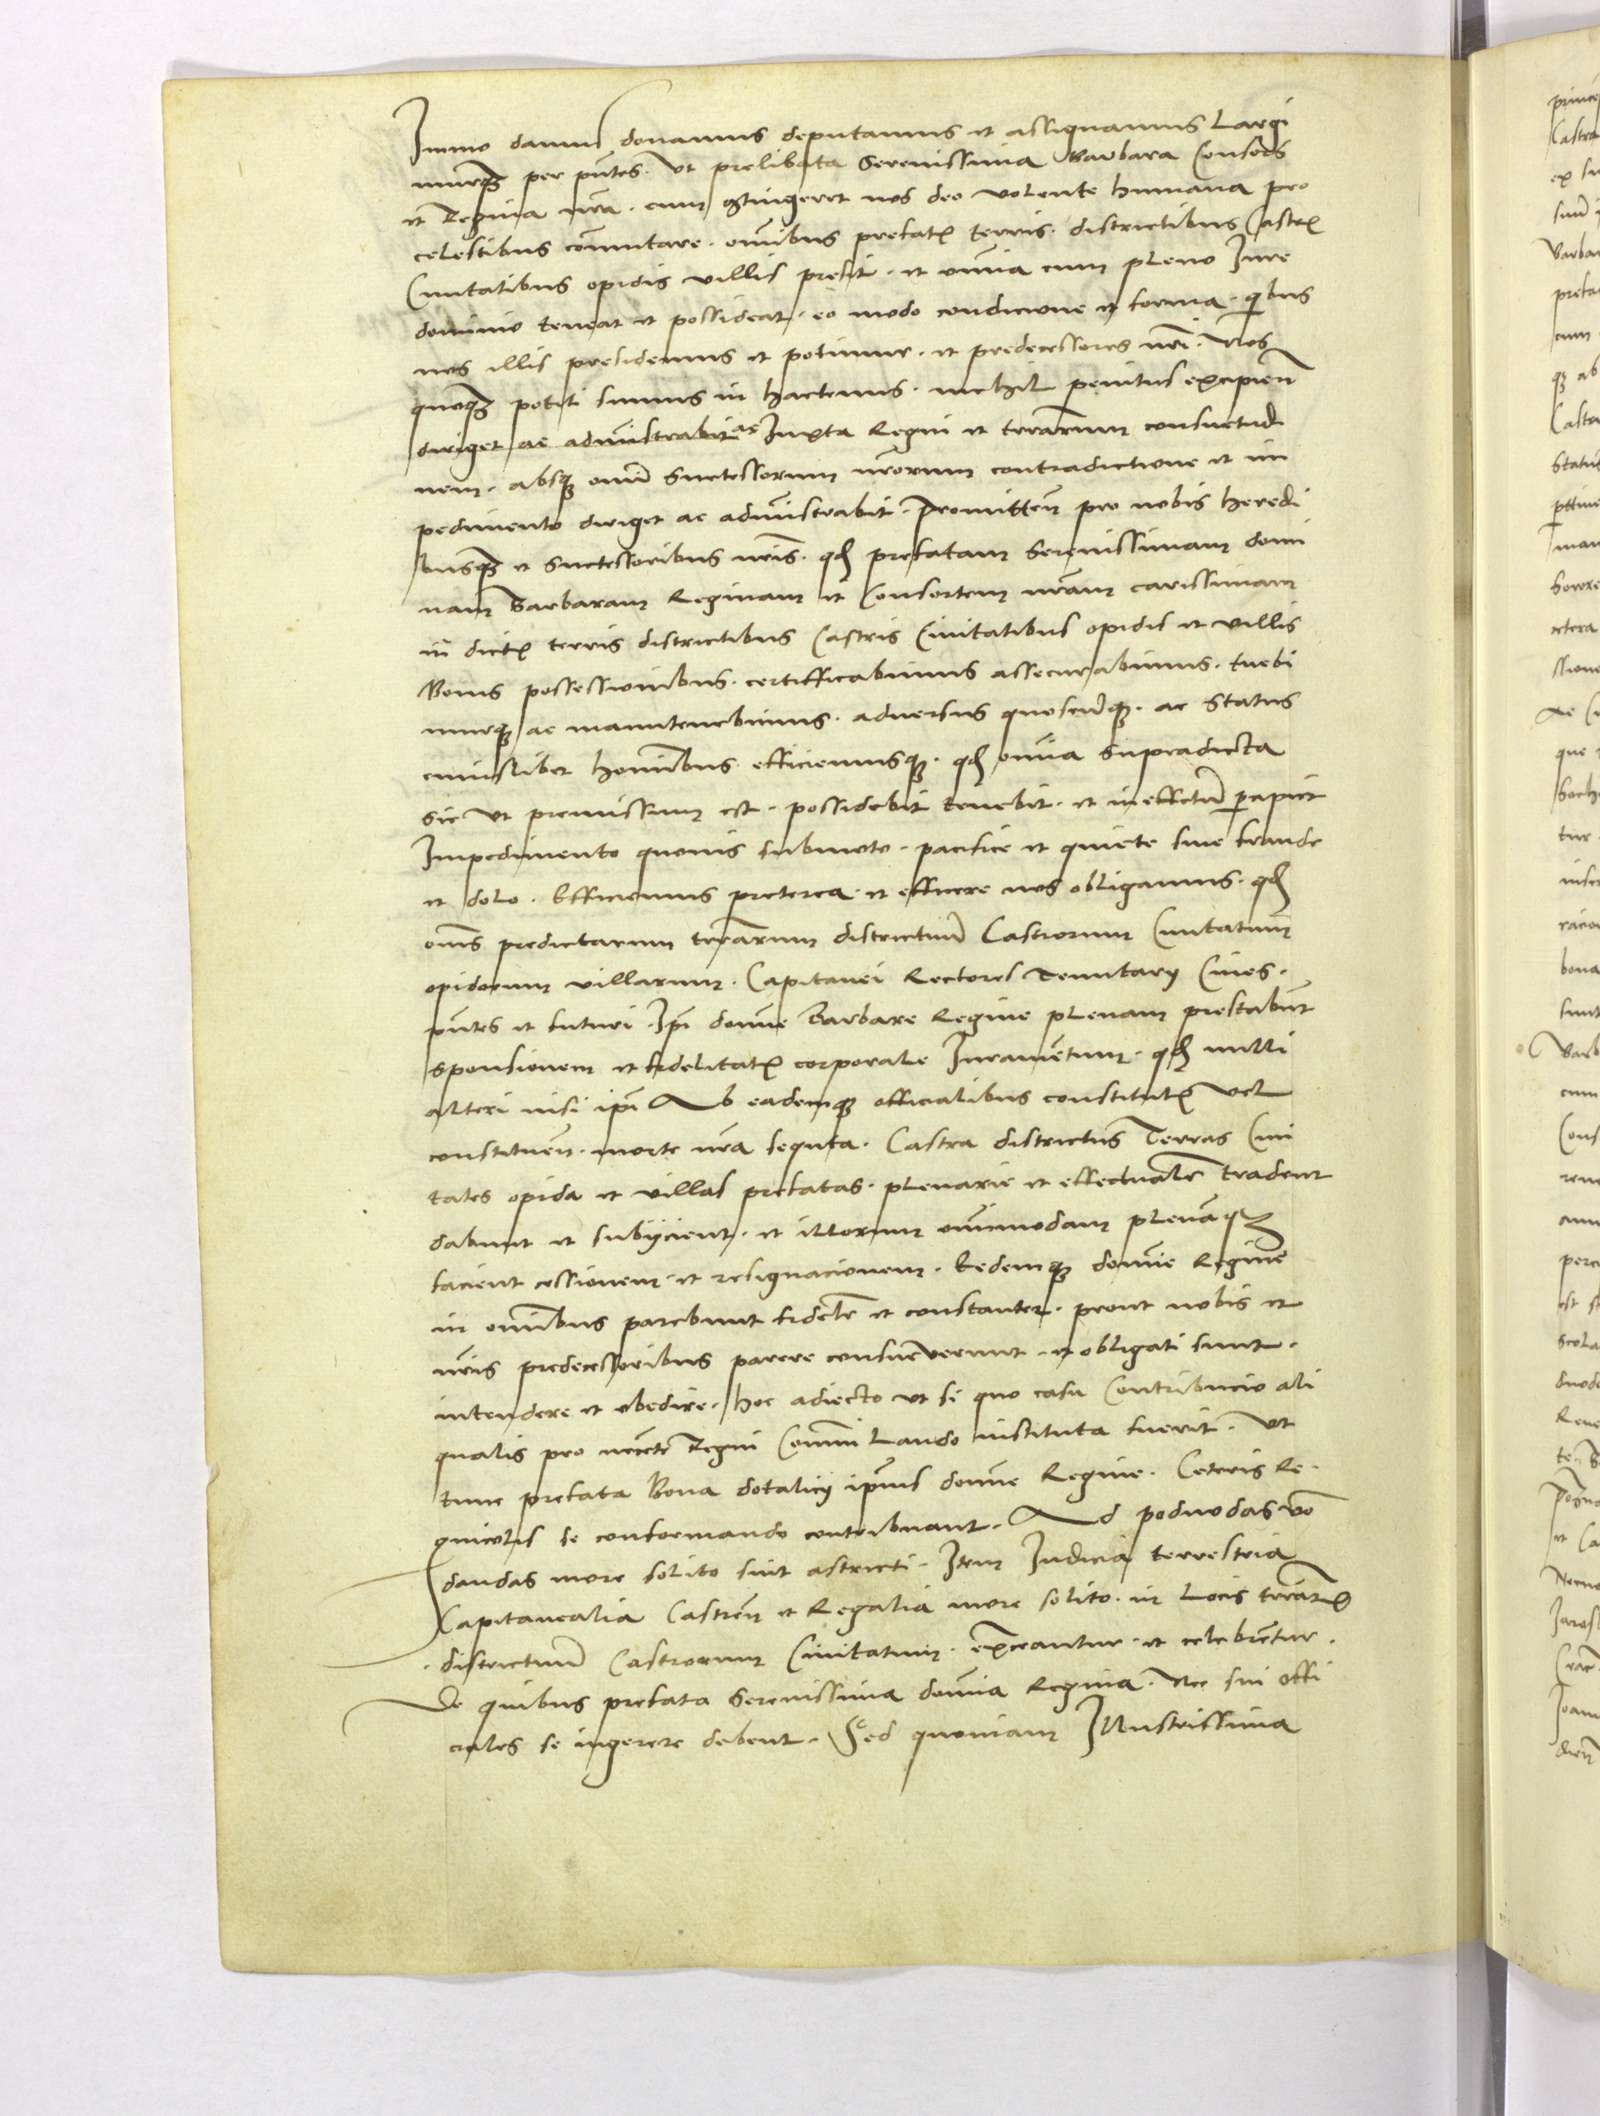 Immo damus donamus deputamus et assignamus Largi
murq3 per pn̄tes. Ut prelibata Serenissima Barbara Consors
et Regina nr̄a. cum ꝯtingeret nos deo volente humana pro
celestibus com̄utare. om̄ibus prefatꝭ terris. districtibus Castrꝭ
Ciuitatibus opidis villis presit. et om̄ia cum pleno Iure
dominio teneat et possideat. eo modo condicione et forma. quibus
nos illis presidemus et potimur. et predecessores nr̄i. Nos
quoq3 potiti sumus in hactenus. nichil penitus excipien̄
diriget ac adm̄istrabit ac Iuxta Regni et terrarum consuetudi
nem. absq3 om̄i Successorum nr̄orum contradictione et im
pedimento diriget ac adm̄istrabit. Promitten̄ pro nobis heredi
busq3 et Successoribus nr̄is. qđ prefatam Serenissimam domi
nam Barbaram Reginam et Consortem nr̄am carissimam
in dictꝭ terris districtibus Castris Ciuitatibus opidis et villis
Bonis possessionibus. certifficabimus assecurabimus. tuebi
murq3 ac manutenebimus. aduersus quoscūq3. ac Status
cuiuslibet homībus. efficiemusq3. qđ om̄ia Supradicta
sic ut premissum est. possidebit tenebit. et in effectū ꝑcapiet
Impedimento quouis submoto. pacifice et quiete sine fraude
et dolo. Efficiemus preterea. et efficere nos obligamus. qđ
om̄s predictarum terrarum districtuū Castrorum Ciuitatum
opidorum villarum. Capitanei Rectores Tenutarij Ciues.
pn̄tes et futuri. Ip̄i dom̄e Barbare Regine plenam prestabūt
sponsionem et fidelitatꝭ corporale Iuramētum. qđ nulli
alteri nisi ip̄i Ab eademq3 officialibus constitutꝭ vel
constituen̄. morte nr̄a sequta. Castra districtus Terras Ciui
tates opida et villas prefatas. plenarie et effectualr̄ tradent
dabunt et subijcient. et illorum om̄imodam plenāq3
facient cessionem et resignacionem. Eedemq3 dom̄e Regine
in om̄ibus parebunt fidelr̄ et constanter. prout nobis et
nr̄is predecessoribus parere consueuerunt. et obligati sunt.
intendere et obedire. hoc adiecto ut si quo casu Contribucio ali
qualis pro necēte Regni Com̄i Laudo instituta fuerit. Ut
tunc prefata Bona dotalicij ip̄ius dom̄e Regine. Ceteris Re
gnicolis se conformando contribuant. Ad poduodas vō
dandas more solito sint astricti. Item Iudicia terrestria
Capitanealia Castren̄ et Regalia more solito. in Locis terrarꝝ
districtuū Castrorum Ciuitatum. exerceantur. et celebrētur.
De quibus prefata Serenissima dom̄a Regina. Nec sui offi
ciales se ingerere debent. Sed quoniam Illustrissima